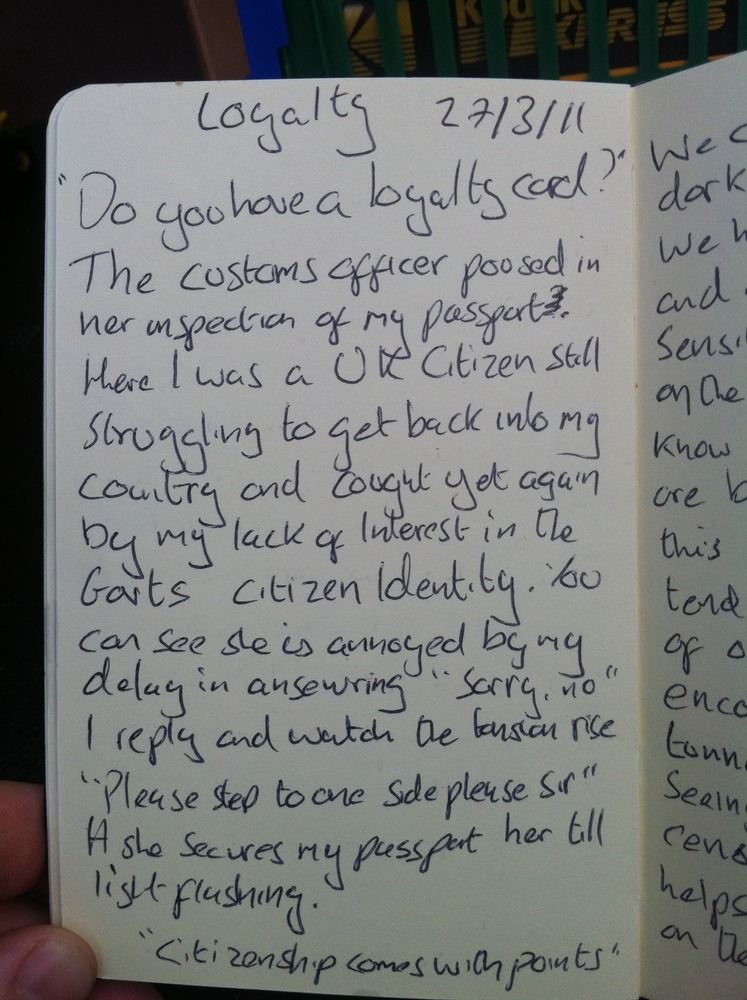 Kodak
EXPRESS
Loyalty 27/3/11
"Do you have a loyalty card?"
The customs officer poosed in
her inspection of my passport.
Here I was a UK Citizen still
struggling to get back into my
country and caught yet again
by my lack of Interest in the
Govts Citizen Identity. You
can see she is annoyed by my
delay in ansewring "Sorry, no"
I reply and watch the tension rise
"Please step to one side please Sir"
A she secures my passport her till
light flashing.
"Citizenship comes with points"
We
dark
We h
and
Sensi
on the
Know
are b
this
tend
of o
enco
tunn
Seein
cens
helps
on the